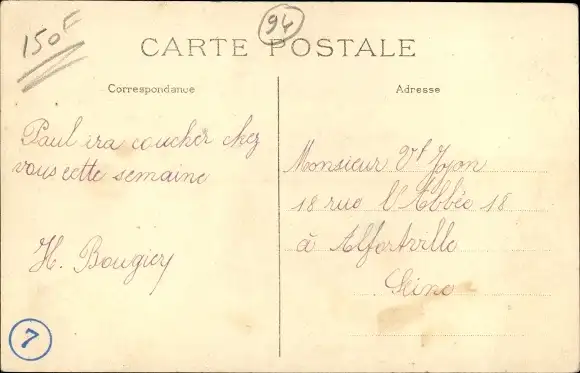 150F
94
CARTE POSTALE
Correspondance
Adresse
Paul ira coucher chez
vous cette semaine
H. Bougiery
Monsieur Vt Joyon
18 rue l'Abbée 18
à Alfortville
Seine
7